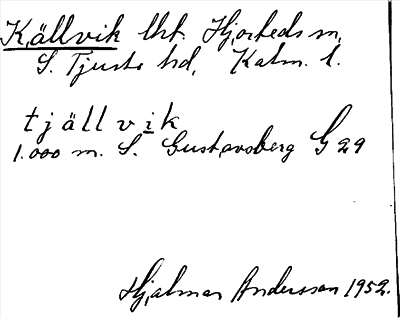 Källvik lht. Hjorteds sn,
S. Tjusts hd, Kalm. l.
tjällvik
1.000 m. S. Gustavsberg G 29
Hjalmar Andersson 1952.